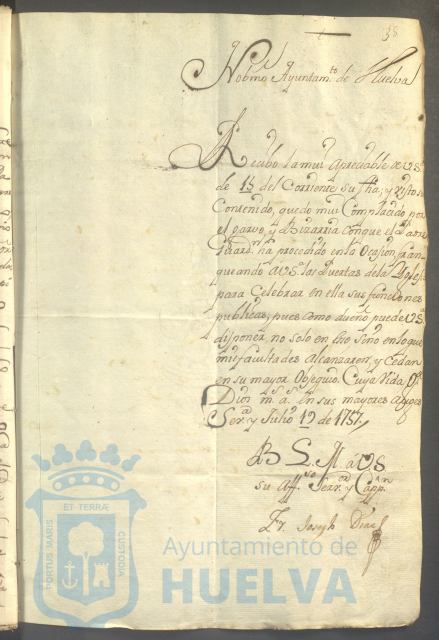 38
Nobmo Ayuntam.to de Huelva
Recibo la mui apreciable de VS.a
de 15 del Corriente, su fha; y visto su
Contenido, quedo mui Complacido por
el garvo, y Bizarria conque el Padre
Guard.n ha procedido en la Ocasion, fran
queando a VS.a las Puertas de la Yglesia
para Celebrar en ella sus funciones
publicas, pues como dueño puede VS.a
disponer, no solo en eso sino en lo que
mis facultades alcanzaren, y Cedan
en su mayor Obsequio. Cuya Vida
Dios m.s a.s en sus mayores
y Julio 19 de 1757
B L M a VS
su Aff.mo Serv.or y Capp.an
Fr. Joseph Diaz
ET TERRÆ
PORTUS MARIS
CUSTODIA
Ayuntamiento de
HUELVA